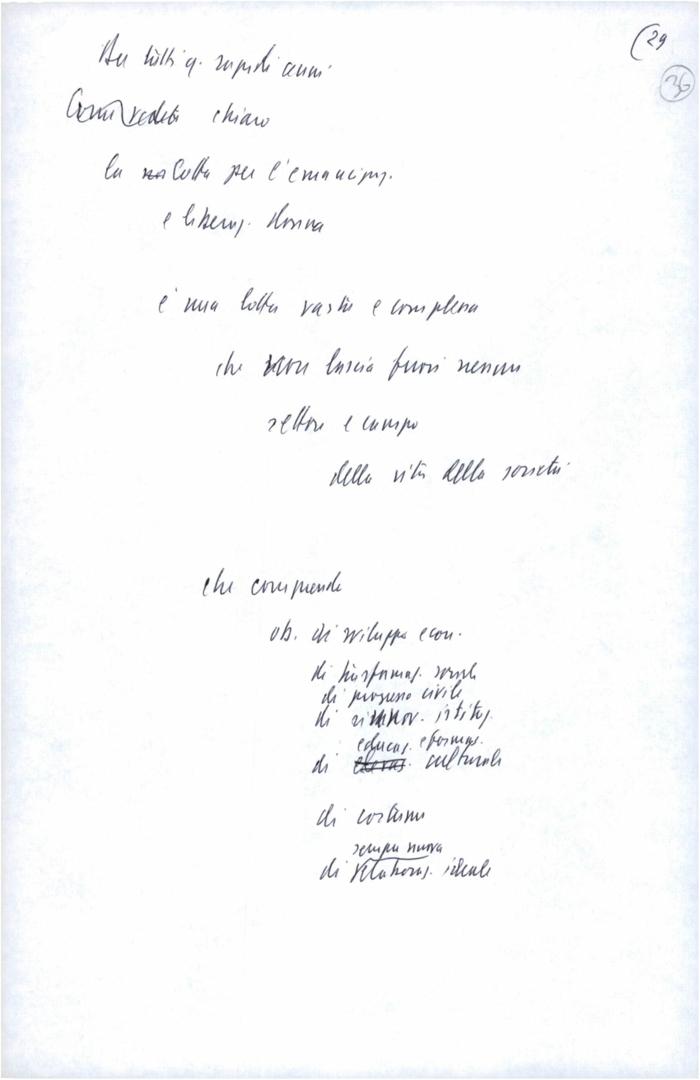 (29
36
tutti q. rapidi cenni
Come vedete chiaro
la lotta per l'emancipaz.
e liberaz. donna
è una lotta vasta e complessa
che non lascia fuori nessun
settore e campo
della vita della società
che comprende
ob. di sviluppo econ.
di trasformaz. sociale
di progresso civile
di rinnov. istituz.
educaz. e formaz.
di culturale
di costume
sempre nuova
di elaboraz. ideale